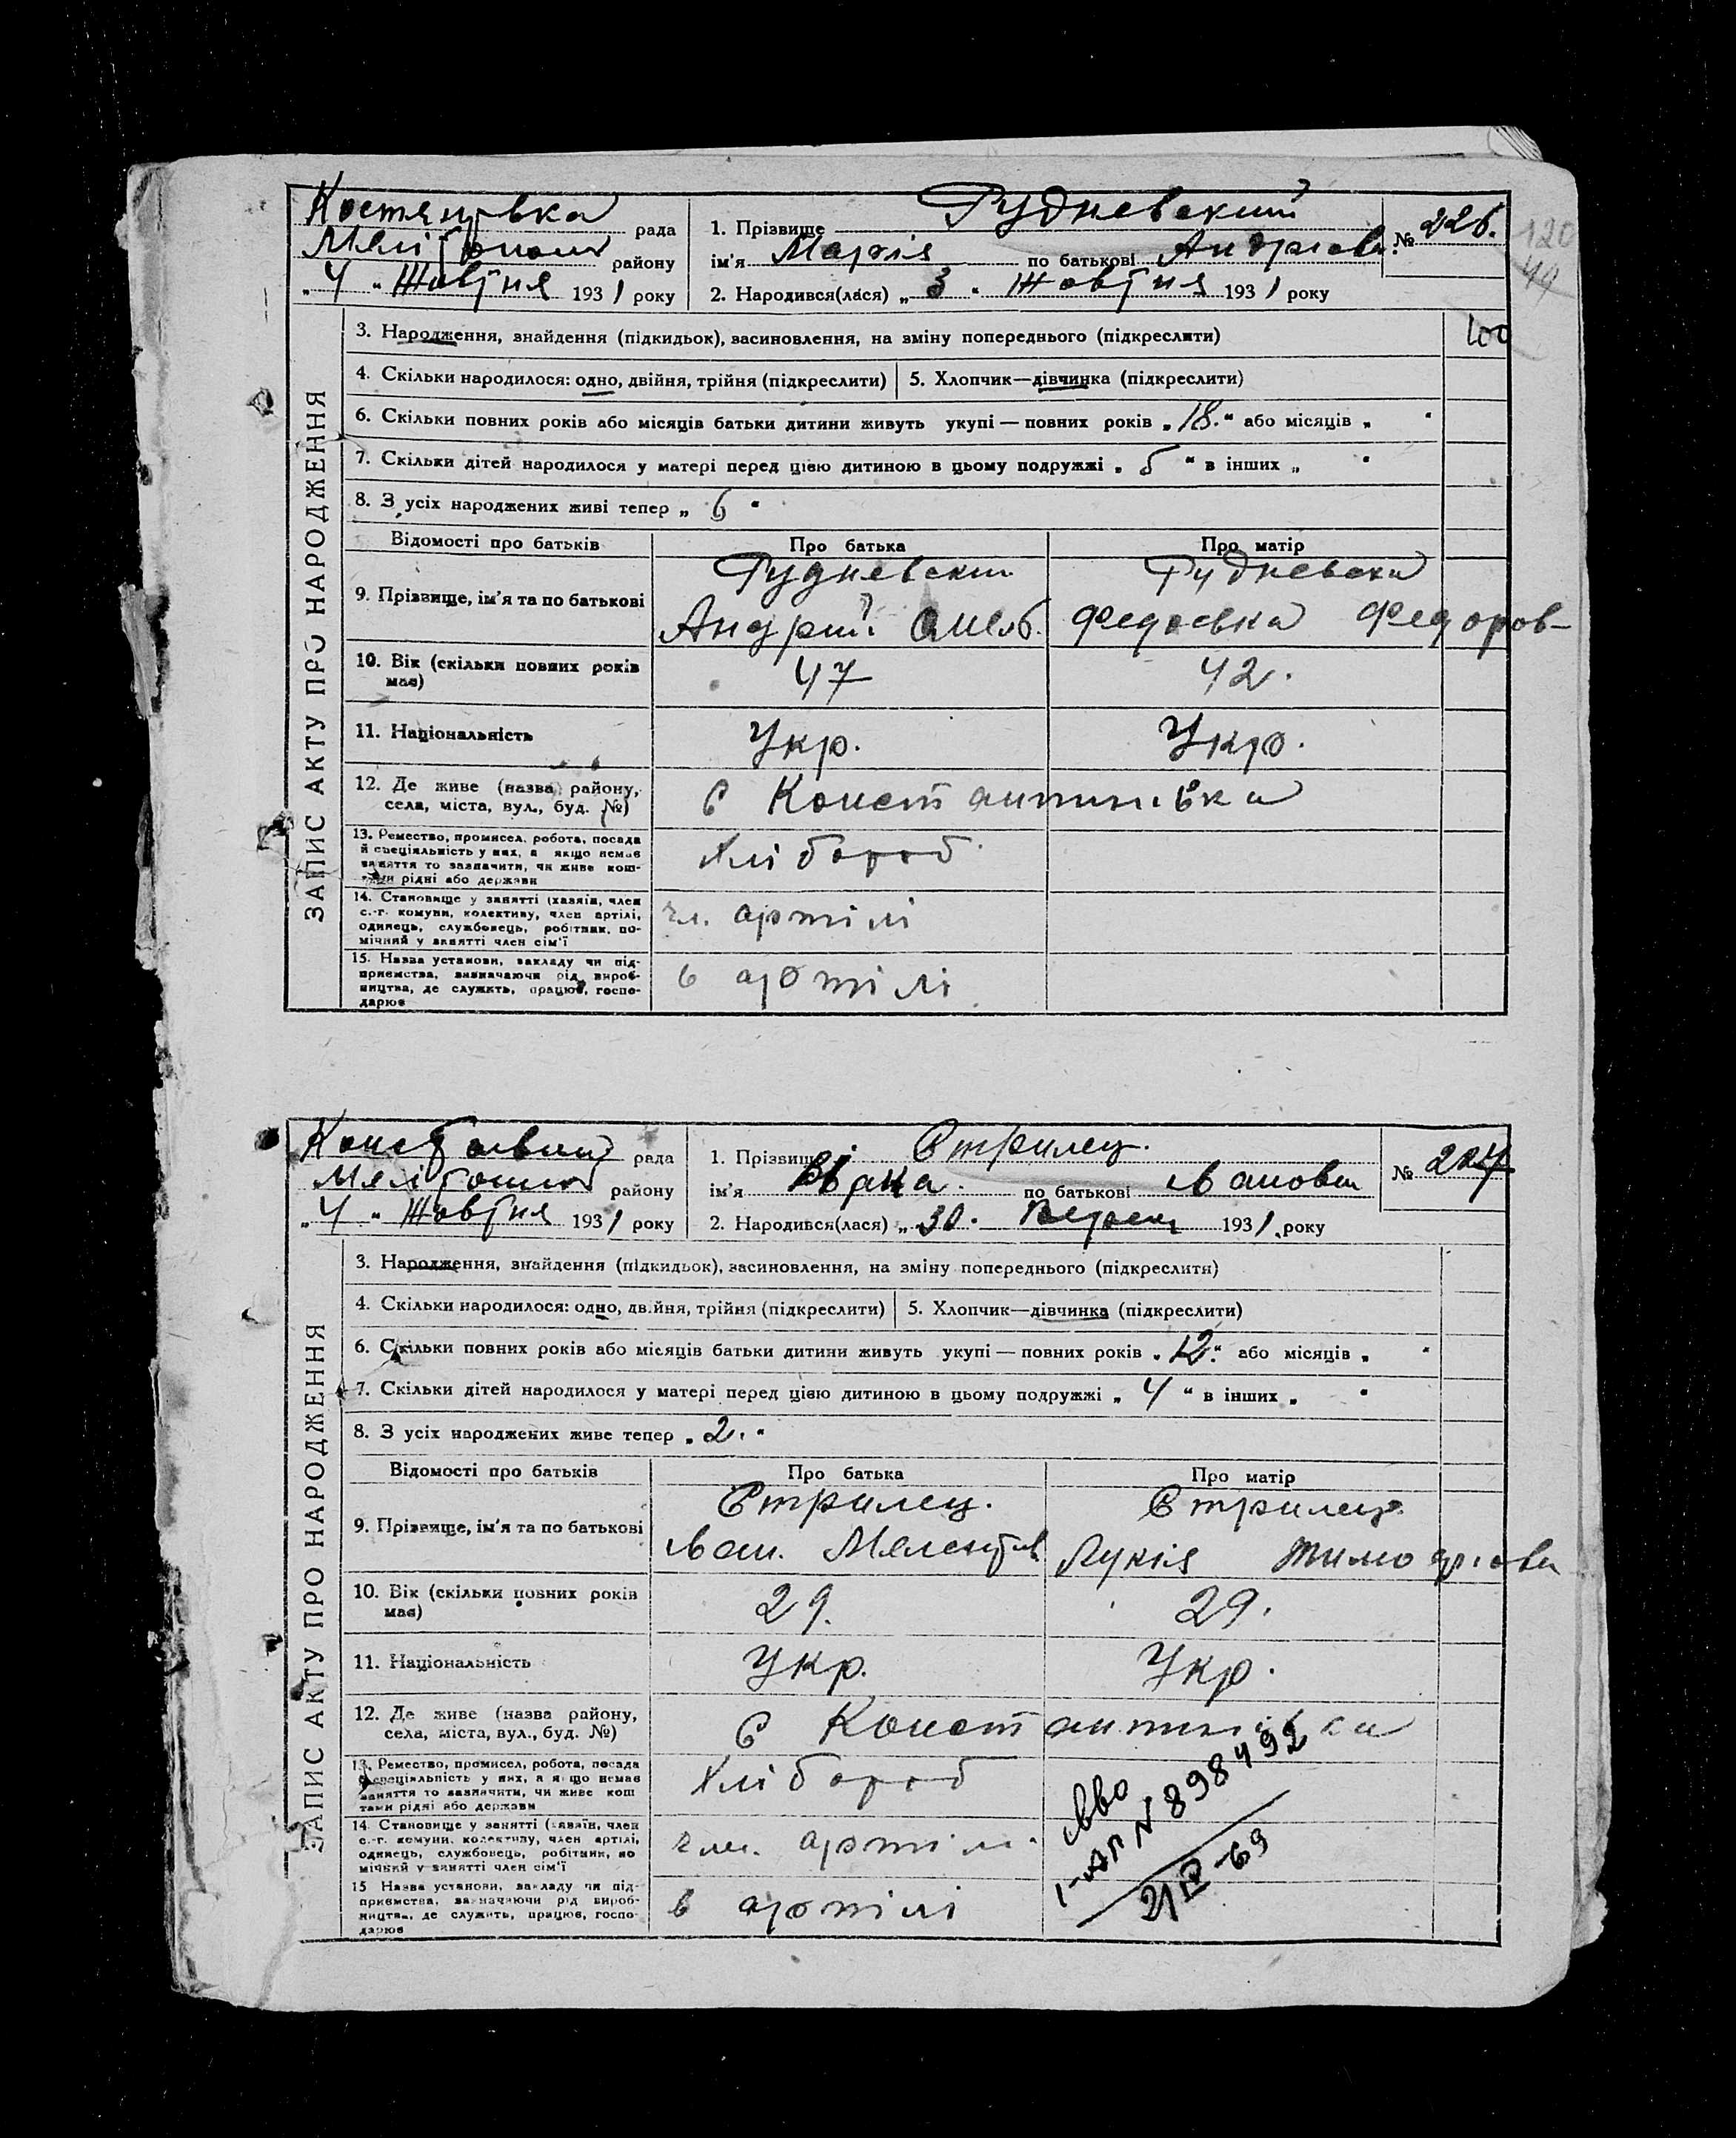 рада
району
"4" Жовтня 1931 року
1. Прізвище Рудневский
ім'я Марія по батькові Андрієв.
2. Народився(лася) „3" Жовтня 1931 року
№ 226.
120
49
ЗАПИС АКТУ ПРО НАРОДЖЕННЯ
3. Народження, знайдення (підкидьок), засиновлення, на зміну попереднього (підкреслити)
4. Скільки народилося: одно, двійня, трійня (підкреслити)
5. Хлопчик—дівчинка (підкреслити)
6. Скільки повних років або місяців батьки дитини живуть укупі — повних років „18." або місяців „ "
7. Скільки дітей народилося у матері перед цією дитиною в цьому подружжі „5" в інших „ "
8. З усіх народжених живі тепер „6"
Відомості про батьків
Про батька
Про матір
9. Прізвище, ім'я та по батькові
Рудневский
Андрій
Рудневска
Федоров-
10. Вік (скільки повних років має)
47
42.
11. Національність
Укр.
Укр.
12. Де живе (назва району, села, міста, вул., буд. №)
с Константинівка
13. Ремество, промисел, робота, посада й спеціяльність у них, а якщо немає заняття то зазначити, чи живе коштами рідні або держави
Хлібороб
14. Становище у занятті (хазяїн, член с.-г. комуни, колективу, член артілі, одинець, службовець, робітник, помічний у занятті член сім'ї
чл. артілі
15. Назва установи, закладу чи підприємства, визначаючи рід виробництва, де служить, працює, господарює
в артілі
рада
району
"4" Жовтня 1931 року
1. Прізвище Стрилец.
ім'я по батькові Івановн
2. Народився(лася) „30." Вересн 1931 року
№ 227
ЗАПИС АКТУ ПРО НАРОДЖЕННЯ
3. Народження, знайдення (підкидьок), засиновлення, на зміну попереднього (підкреслити)
4. Скільки народилося: одно, двійня, трійня (підкреслити)
5. Хлопчик—дівчинка (підкреслити)
6. Скільки повних років або місяців батьки дитини живуть укупі — повних років „12." або місяців „ "
7. Скільки дітей народилося у матері перед цією дитиною в цьому подружжі „4" в інших „ "
8. З усіх народжених живе тепер „2."
Відомості про батьків
Про батька
Про матір
9. Прізвище, ім'я та по батькові
Стрилец.
Іван.
Стрилец.
Лукія Тимофієвн
10. Вік (скільки повних років має)
29.
29.
11. Національність
Укр.
Укр.
12. Де живе (назва району, села, міста, вул., буд. №)
с Константинівка
13. Ремество, промисел, робота, посада й спеціяльність у них, а якщо немає заняття то зазначити, чи живе коштами рідні або держави
Хлібороб
14. Становище у занятті (хазяїн, член с.-г. комуни, колективу, член артілі, одинець, службовець, робітник, помічний у занятті член сім'ї
член. артіл.
15. Назва установи, закладу чи підприємства, зазначаючи рід виробництва, де служить, працює, господарює
в артілі
I-АП № 898492
21/IV-69